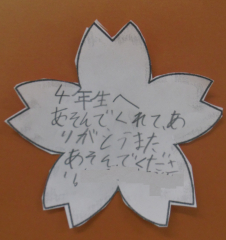 4年生へ
あそんでくれて、あ
りがとうまた
あそんでくださ
い